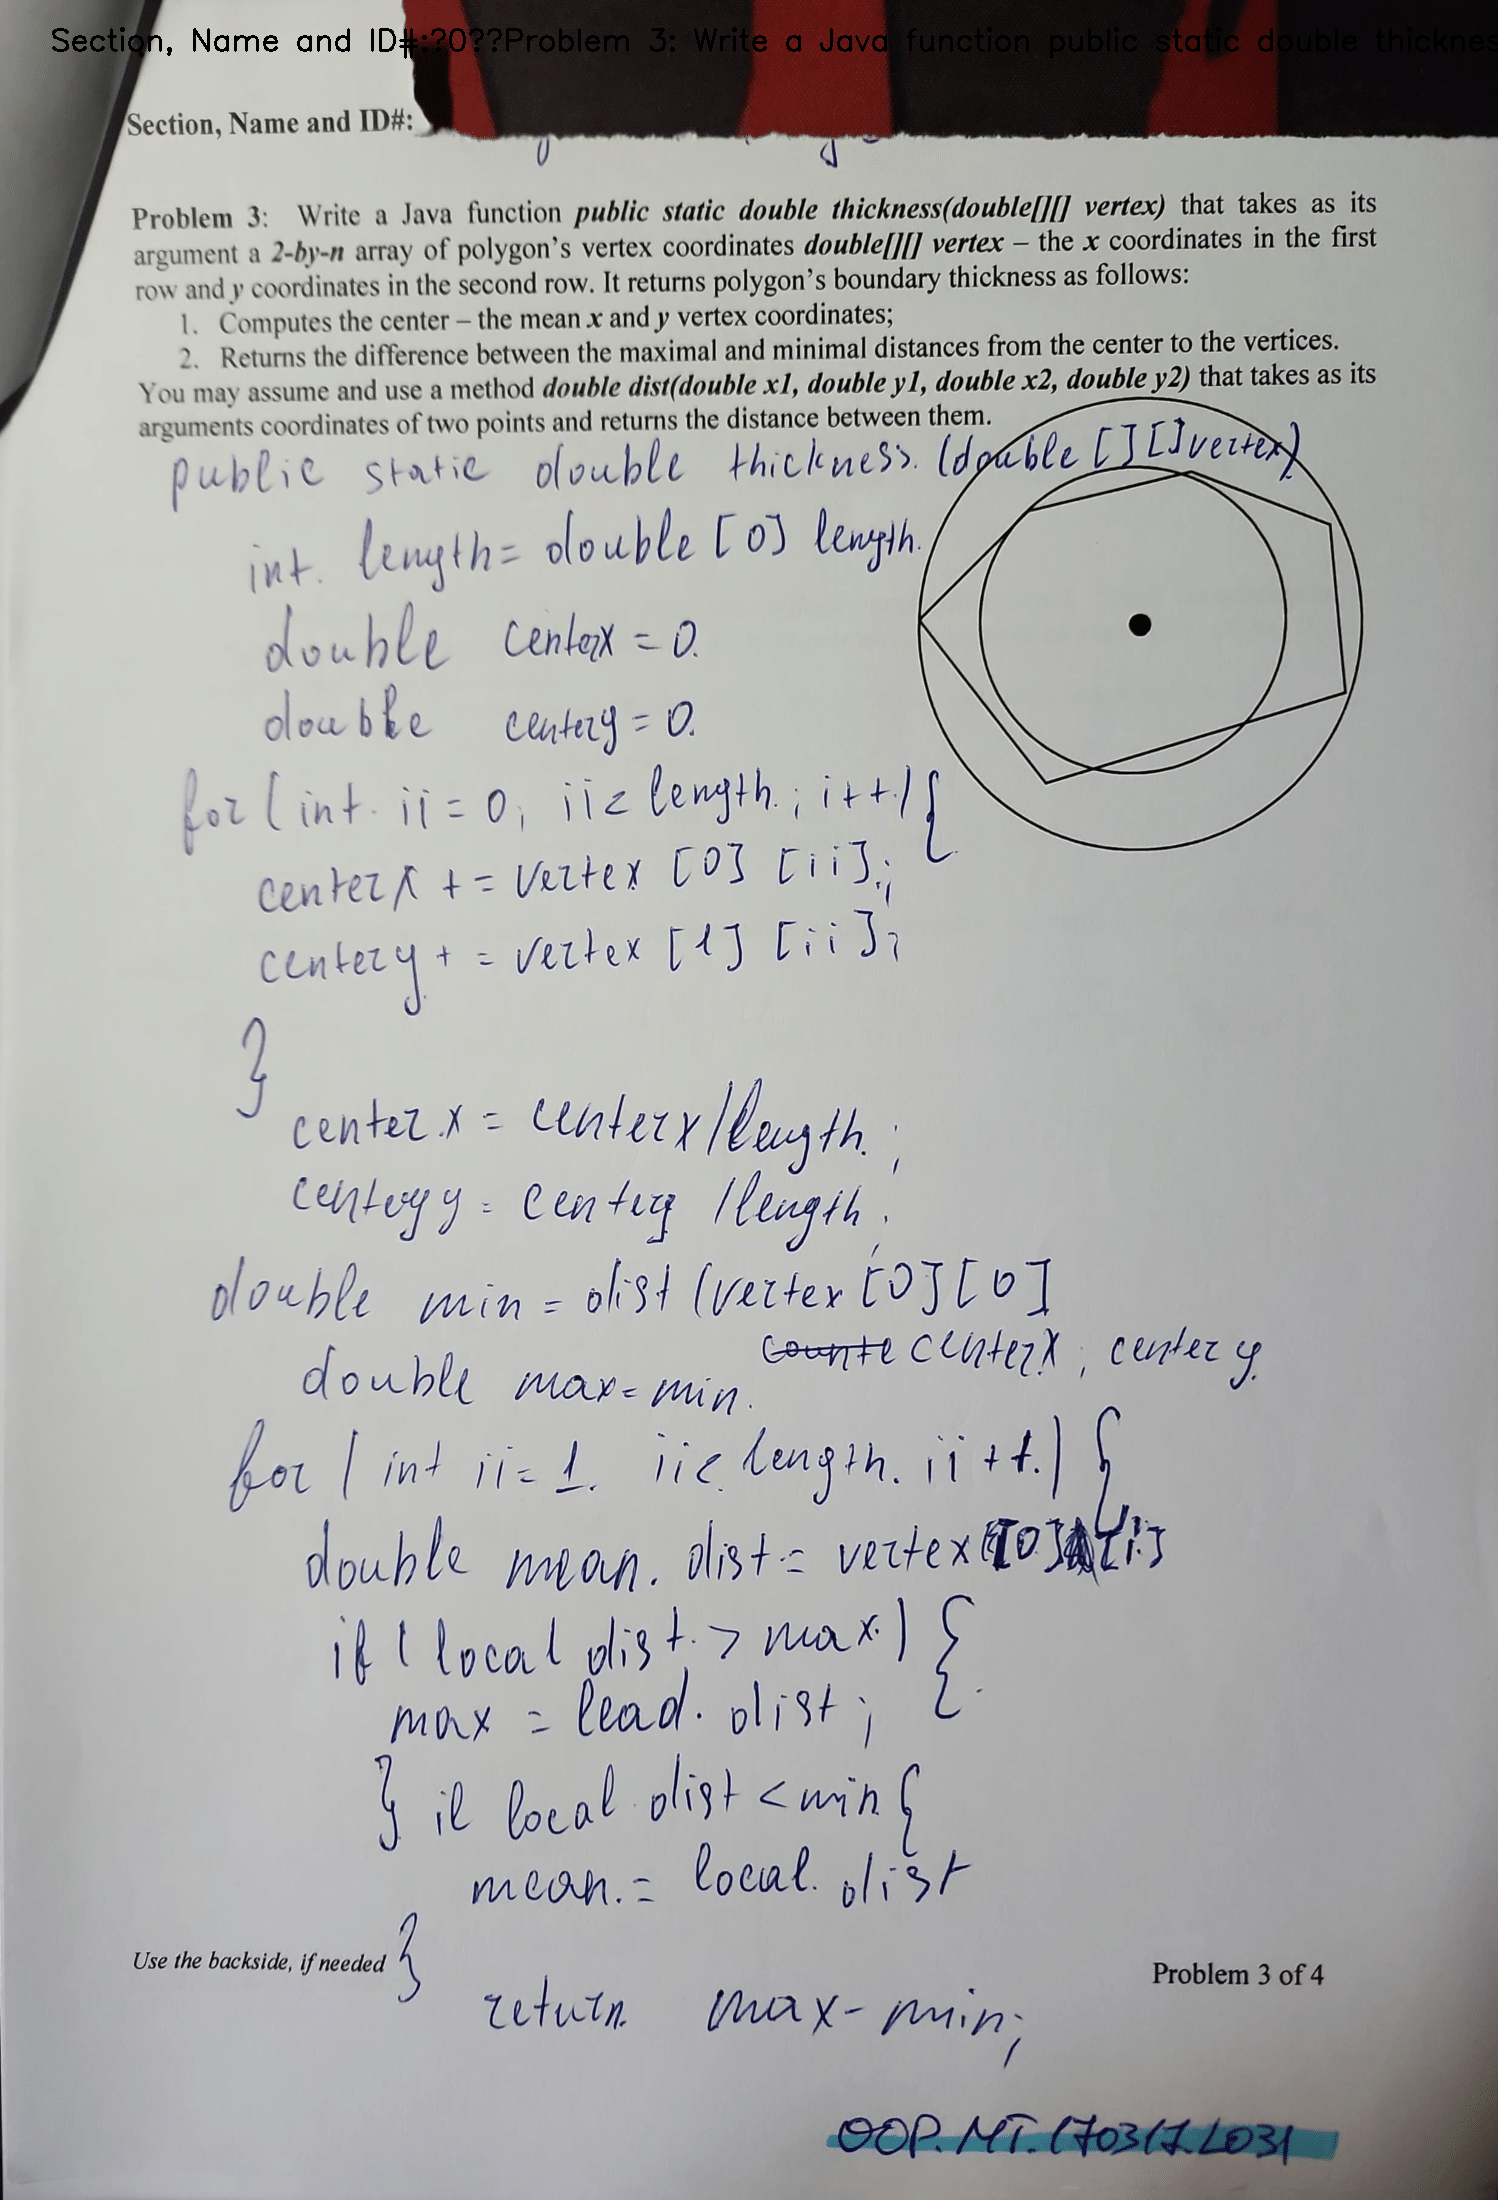 Section, Name and ID#:?0??Problem 3: Write a Java function public static double thicknes
Section, Name and ID#:
Problem 3: Write a Java function public static double thickness(double[][] vertex) that takes as its
argument a 2-by-n array of polygon's vertex coordinates double[][] vertex – the x coordinates in the first
row and y coordinates in the second row. It returns polygon's boundary thickness as follows:
1. Computes the center – the mean x and y vertex coordinates;
2. Returns the difference between the maximal and minimal distances from the center to the vertices.
You may assume and use a method double dist(double x1, double y1, double x2, double y2) that takes as its
arguments coordinates of two points and returns the distance between them.
public static double thickness. (double [][]vertex)
int. length= double [0] length.
double centerx = 0.
double centery = 0.
for (int. ii = 0; ii< length.; i++.) {
centerx += vertex [0] [ii].;
centery += vertex [1] [ii];
}
center.x = centerx/length.;
centery y = centery /length.;
double min = dist (vertex [0] [0]
centerx, centery.
double max = min.
for ( int ii = 1. ii<. length. ii ++.) {
double mean. dist.= vertex [0] [i]
if ( local dist. > max.) {.
max = lead. dist;
} il local. dist < min {
mean. = local. dist
Use the backside, if needed }
Problem 3 of 4
return. max - min;
OOP.MT.170317.L031